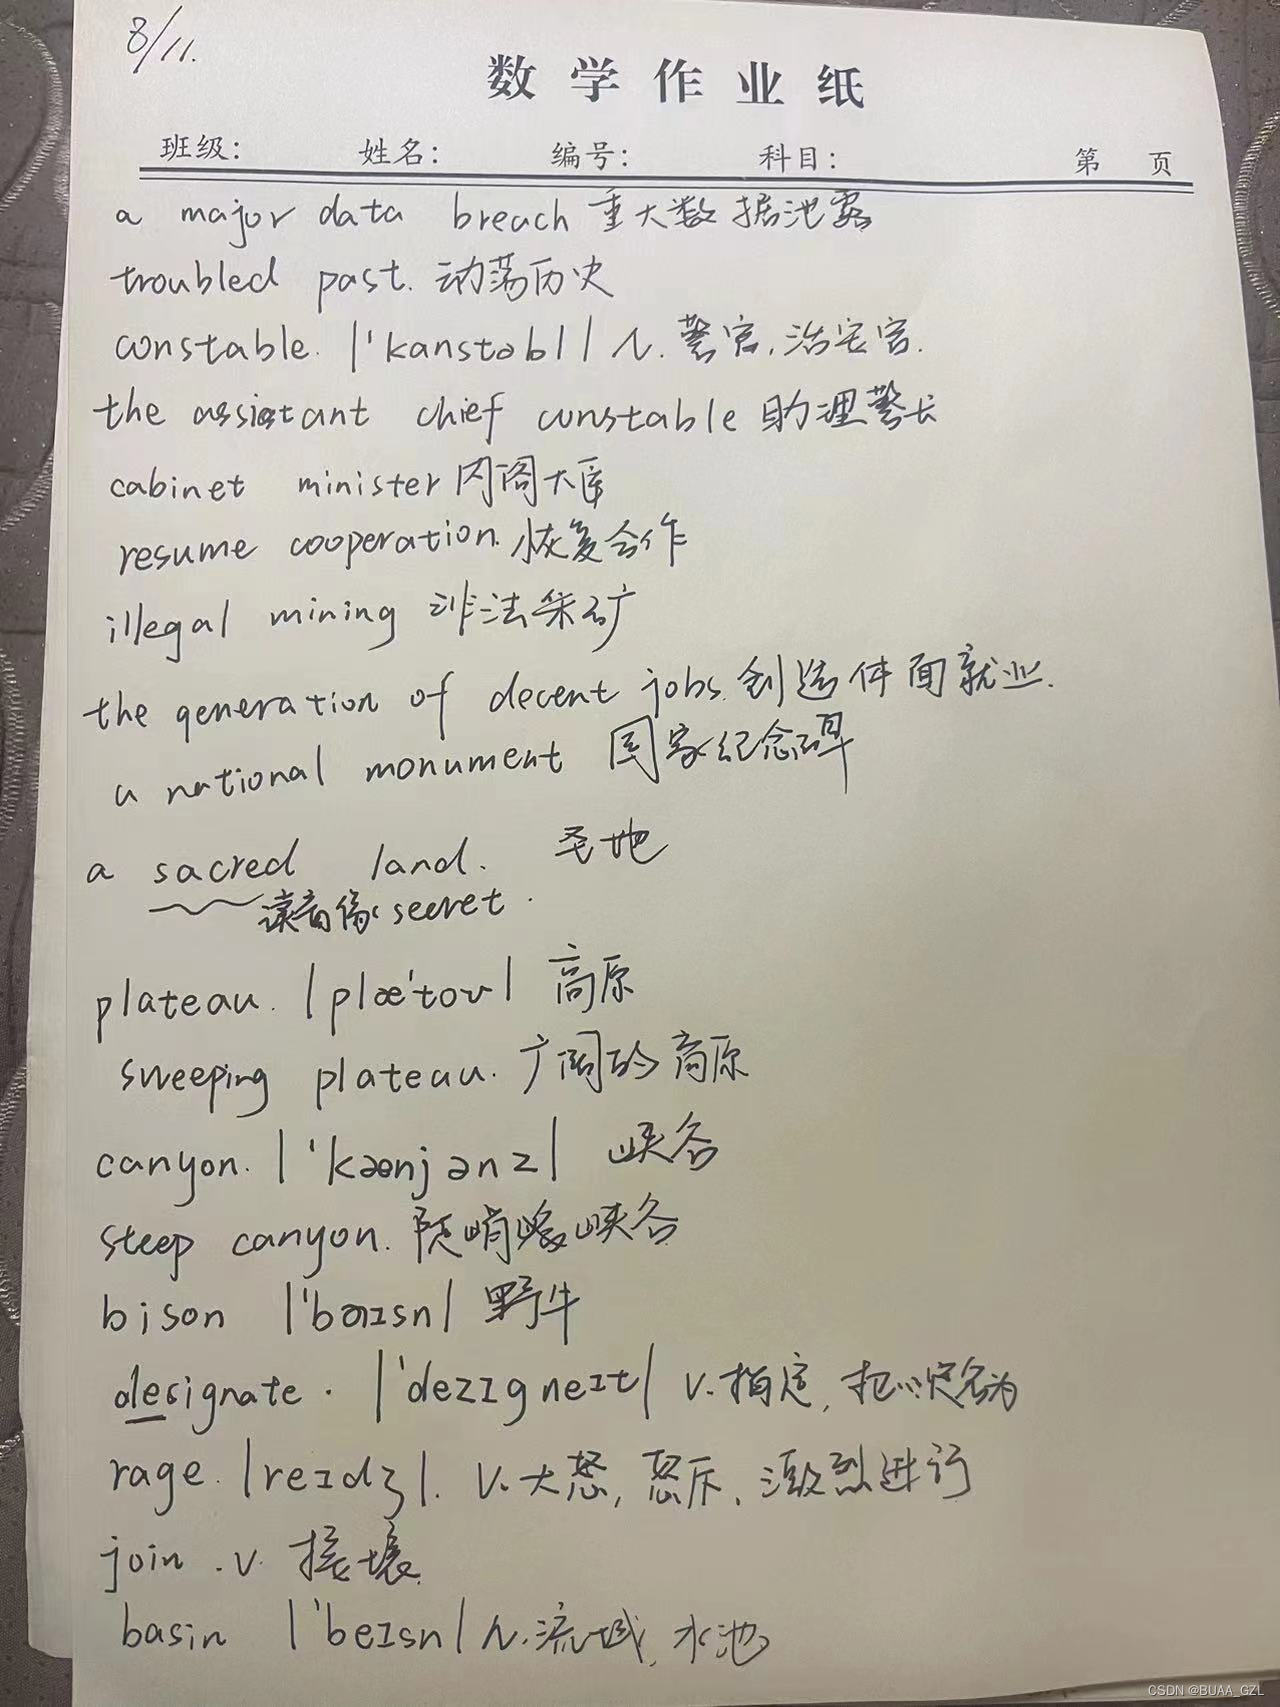 8/11.
数学作业纸
班级： 姓名： 编号： 科目： 第 页
a major data breach 重大数据泄露
troubled past. 动荡历史
constable. |'kanstəbl| n. 警官,治安官.
the assistant chief constable 助理警长
cabinet minister 内阁大臣
resume cooperation. 恢复合作
illegal mining 非法采矿
the generation of decent jobs. 创造体面就业.
a national monument 国家纪念碑
a sacred land. 圣地
读音像 secret.
plateau. |plæ'toʊ| 高原
sweeping plateau. 广阔的高原
canyon. |'kænjənz| 峡谷
steep canyon. 陡峭峡谷
bison |'baɪsn| 野牛
designate. |'dezɪgneɪt| v.指定, 把…定名为
rage. |reɪdʒ|. v.大怒, 怒斥, 激烈进行
join .v. 接壤.
basin |'beɪsn| n.流域, 水池
CSDN @BUAA_GZL